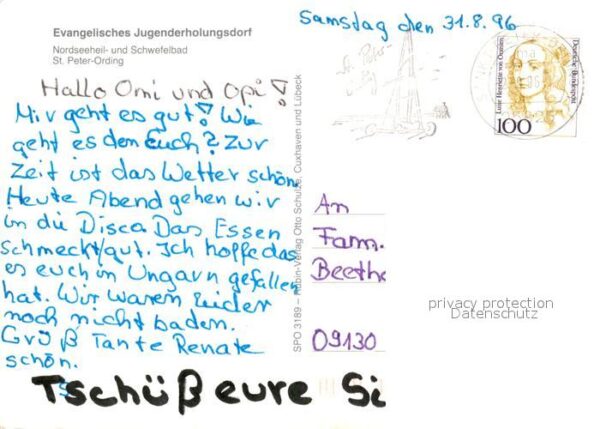 Evangelisches Jugenderholungsdorf
Nordseeheil- und Schwefelbad
St. Peter-Ording
Samstag den 31.8.96
Hallo Omi und Opi!
Mir geht es gut! Wie
geht es den Euch? Zur
Zeit ist das Wetter schön.
Heute Abend gehen wir
in die Disca Das Essen
schmeckt gut. Ich hoffe das
es euch in Ungarn gefallen
hat. Wir waren leider
noch nicht baden.
Grüß Tante Renate
schön.
Tschüß eure Si
SPO 3189 – Rubin-Verlag Otto Schulze, Cuxhaven und Lübeck
St. Peter-
Lotte Henriette von Ouinien
Deutsche Bundespost
100
An
Fam.
Beeth
09130
privacy protection
Datenschutz